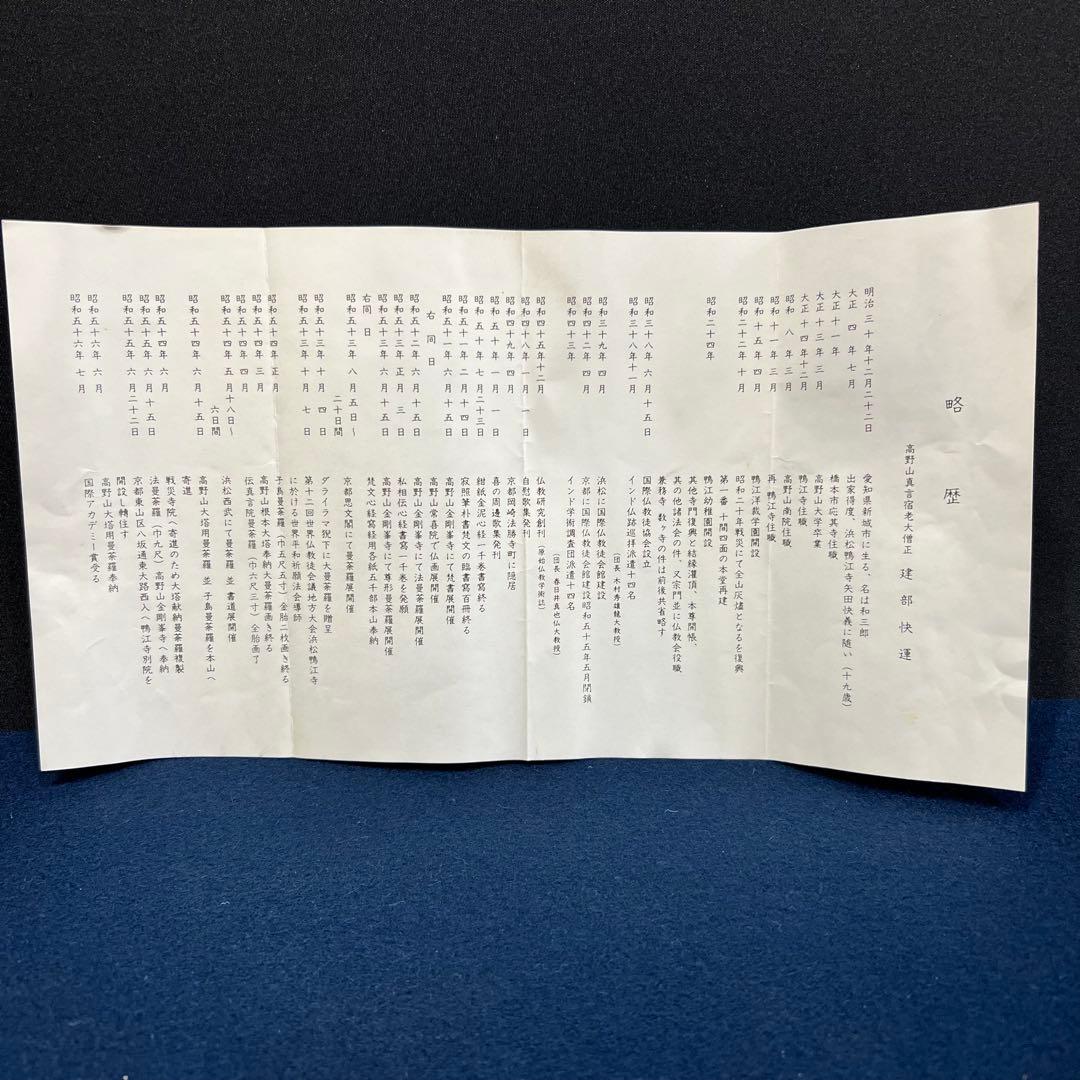 略歴
高野山真言宿老大僧正 建部快運
明治三十年十二月二十二日 愛知県新城市に生る、名は和三郎
大正四年七月 出家得度、浜松鴨江寺矢田快義に随い(十九歳)
大正十一年 橋本市応其寺住職
大正十三年三月 高野山大学卒業
大正十四年十二月 鴨江寺住職
昭和八年三月 高野山南院住職
昭和十一年三月 再鴨江寺住職
昭和十五年四月 鴨江洋裁学園開設
昭和二十二年十月 昭和二十年戦災にて全山灰燼となるを復興
第一番十間四面の本堂再建
昭和二十四年 鴨江幼稚園開設
其他寺門復興と結縁灌頂、本尊開帳、
其の他諸法会の件、又宗門並に仏教会役職
兼務寺数ヶ寺の件は前後共省略す
昭和三十八年六月十五日 国際仏教徒協会設立
昭和三十八年十一月 インド仏跡巡拝派遣十四名
(団長 木村秀雄龍大教授)
昭和三十九年四月 浜松に国際仏教徒会館建設
昭和四十二年四月 京都に国際仏教徒会館建設昭和五十五年五月閉鎖
昭和四十三年 インド学術調査団派遣十四名
(団長 春日井真也仏大教授)
昭和四十五年十二月 仏教研究創刊(原始仏教学術誌)
昭和四十八年一月一日 自慰歌集発刊
昭和四十九年四月 京都岡崎法勝寺町に隠居
昭和五十年一月一日 喜の周辺歌集発刊
昭和五十年七月二十三日 紺紙金泥心経一千巻書寫終る
昭和五十一年二月十四日 寂照筆朴書梵文の臨書寫百冊終る
昭和五十一年六月十五日 高野山金剛峯寺にて梵書展開催
右同日 高野山常喜院で仏画展開催
昭和五十二年六月十五日 高野山金剛峯寺にて法曼荼羅展開催
昭和五十三年正月三日 私相伝心経書寫一千巻を発願
昭和五十三年六月十五日 高野山金剛峯寺にて尊形曼荼羅展開催
右同日 梵文心経寫経用各紙五千部本山奉納
昭和五十三年八月五日~二十日間 京都思文閣にて曼荼羅展開催
昭和五十三年十月四日 ダライラマ猊下に大曼荼羅を贈呈
昭和五十三年十月七日 第十二回世界仏教徒会議地方大会浜松鴨江寺
に於ける世界平和祈願法会導師
昭和五十四年正月 子島曼荼羅(巾五尺五寸)金胎二枚画き終る
昭和五十四年三月 高野山根本大塔奉納大曼荼羅画き終る
昭和五十四年四月 伝真言院曼荼羅(巾六尺三寸)全胎画了
昭和五十四年五月十八日~六日間 浜松西武にて曼荼羅並書道展開催
昭和五十四年六月十五日 高野山大塔用曼荼羅並子島曼荼羅を本山へ
寄進
昭和五十四年六月 戦災寺院へ寄進のため大塔献納曼荼羅複製
昭和五十五年六月十五日 法曼荼羅(巾九尺)高野山金剛峯寺へ奉納
昭和五十五年六月二十二日 京都東山区八坂通東大路西入へ鴨江寺別院を
開設し轉住す
昭和五十六年六月 高野山大塔用曼荼羅奉納
昭和五十六年七月 国際アカデミー賞受る